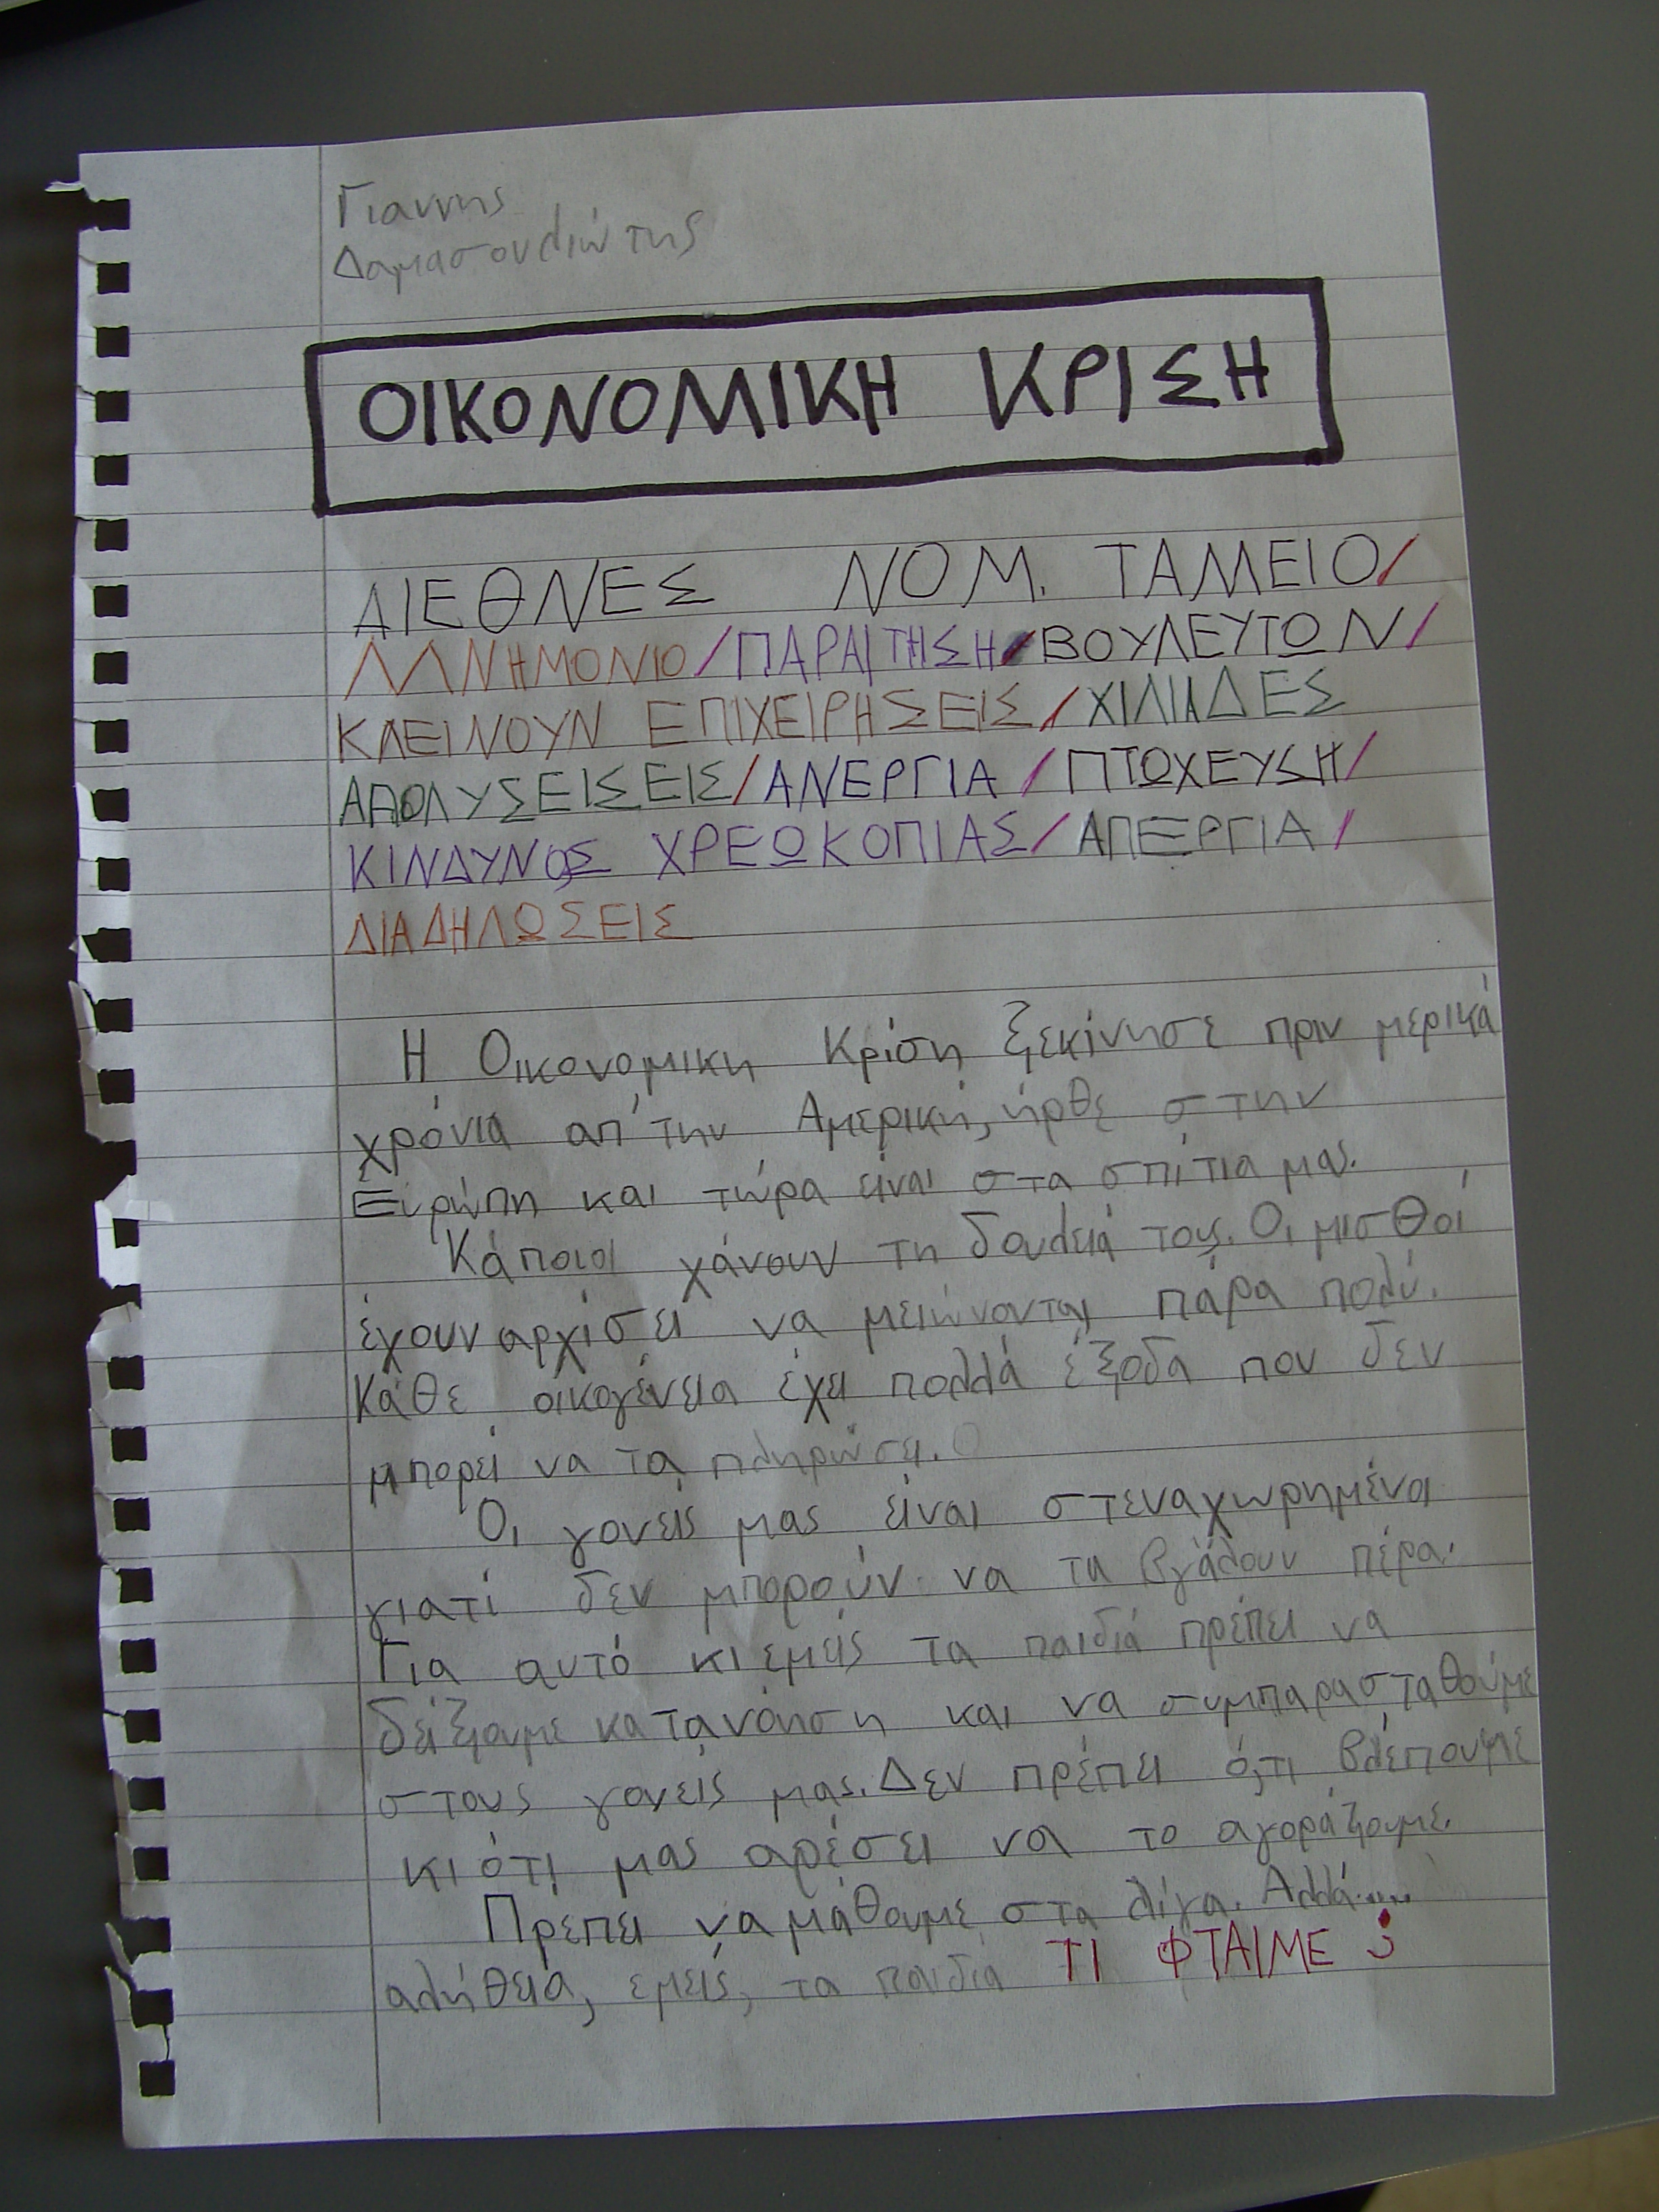 Γιαννης
Δαμασουλιώτης
ΟΙΚΟΝΟΜΙΚΗ ΚΡΙΣΗ
ΔΙΕΘΝΕΣ ΝΟΜ. ΤΑΜΕΙΟ/
ΜΝΗΜΟΝΙΟ/ΠΑΡΑΙΤΗΣΗ/ΒΟΥΛΕΥΤΩΝ/
ΚΛΕΙΝΟΥΝ ΕΠΙΧΕΙΡΗΣΕΙΣ/ΧΙΛΙΑΔΕΣ
ΑΠΟΛΥΣΕΙΣΕΙΣ/ΑΝΕΡΓΙΑ/ΠΤΩΧΕΥΣΗ/
ΚΙΝΔΥΝΟΣ ΧΡΕΩΚΟΠΙΑΣ/ΑΠΕΡΓΙΑ/
ΔΙΑΔΗΛΩΣΕΙΣ
Η Οικονομικη Κρίση ξεκίνησε πριν μερικά
χρόνια απ' την Αμερική, ήρθε στην
Ευρώπη και τώρα είναι στα σπίτια μας.
Κάποιοι χάνουν τη δουλειά τους. Οι μισθοί
έχουν αρχίσει να μειώνονται πάρα πολύ.
Κάθε οικογένεια έχει πολλά έξοδα που δεν
μπορεί να τα πληρώσει.
Οι γονείς μας είναι στεναχωρημένοι
γιατί δεν μπορούν να τα βγάλουν πέρα.
Για αυτό κι εμείς τα παιδιά πρέπει να
δείξουμε κατανόηση και να συμπαρασταθούμε
στους γονείς μας. Δεν πρέπει ό,τι βλέπουμε
κι ότι μας αρέσει να το αγοράζουμε.
Πρέπει να μάθουμε στα λίγα. Αλλά.....
αλήθεια, εμείς, τα παιδιά ΤΙ ΦΤΑΙΜΕ ;